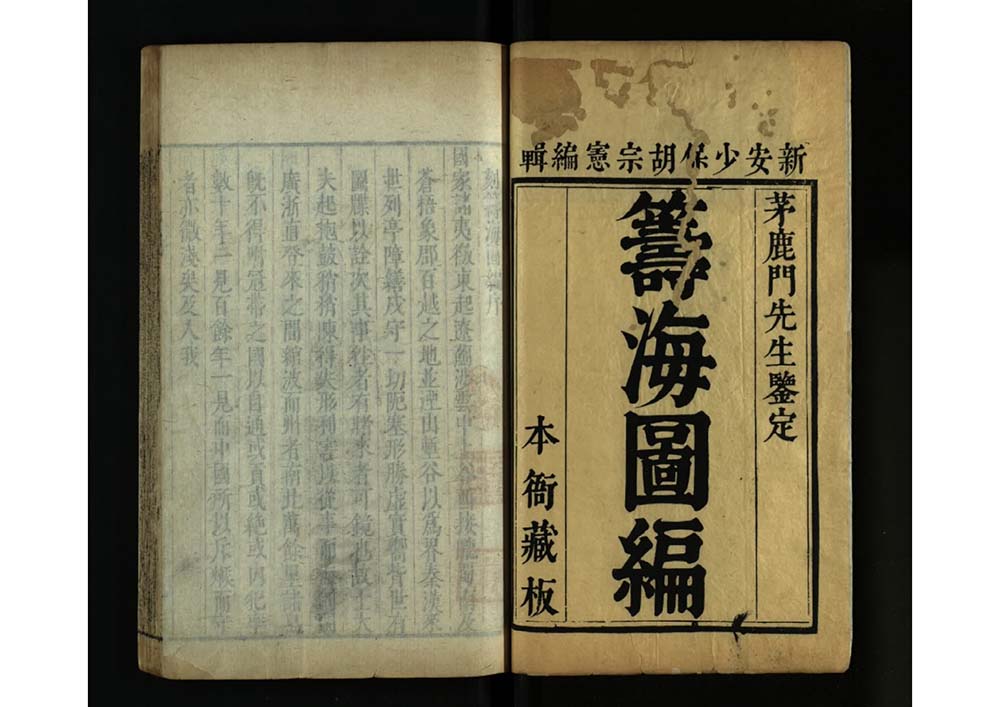 新安少保胡宗憲編輯
茅鹿門先生鑒定
籌海圖編
本衙藏板
刻籌海圖編序
國家諸夷徼東起遼薊雲中上谷西接隴蜀南及
蒼梧象郡百越之地並堙山塹谷以爲界秦漢來
世列亭障繕戍守一切阨塞形勝虛實嚮背世有
圖牒以詮次其事往者有睹來者可鏡也故士大
夫起抱鼓稍稍陳得失形利害以從事而
廣浙直登來之間綰波而州者南北萬餘里諸島
旣不得附冠帶之國以自通或貢或絶或因犯
數十年一見百餘年一見而中國所以斥堠而守
者亦微淺矣及入我